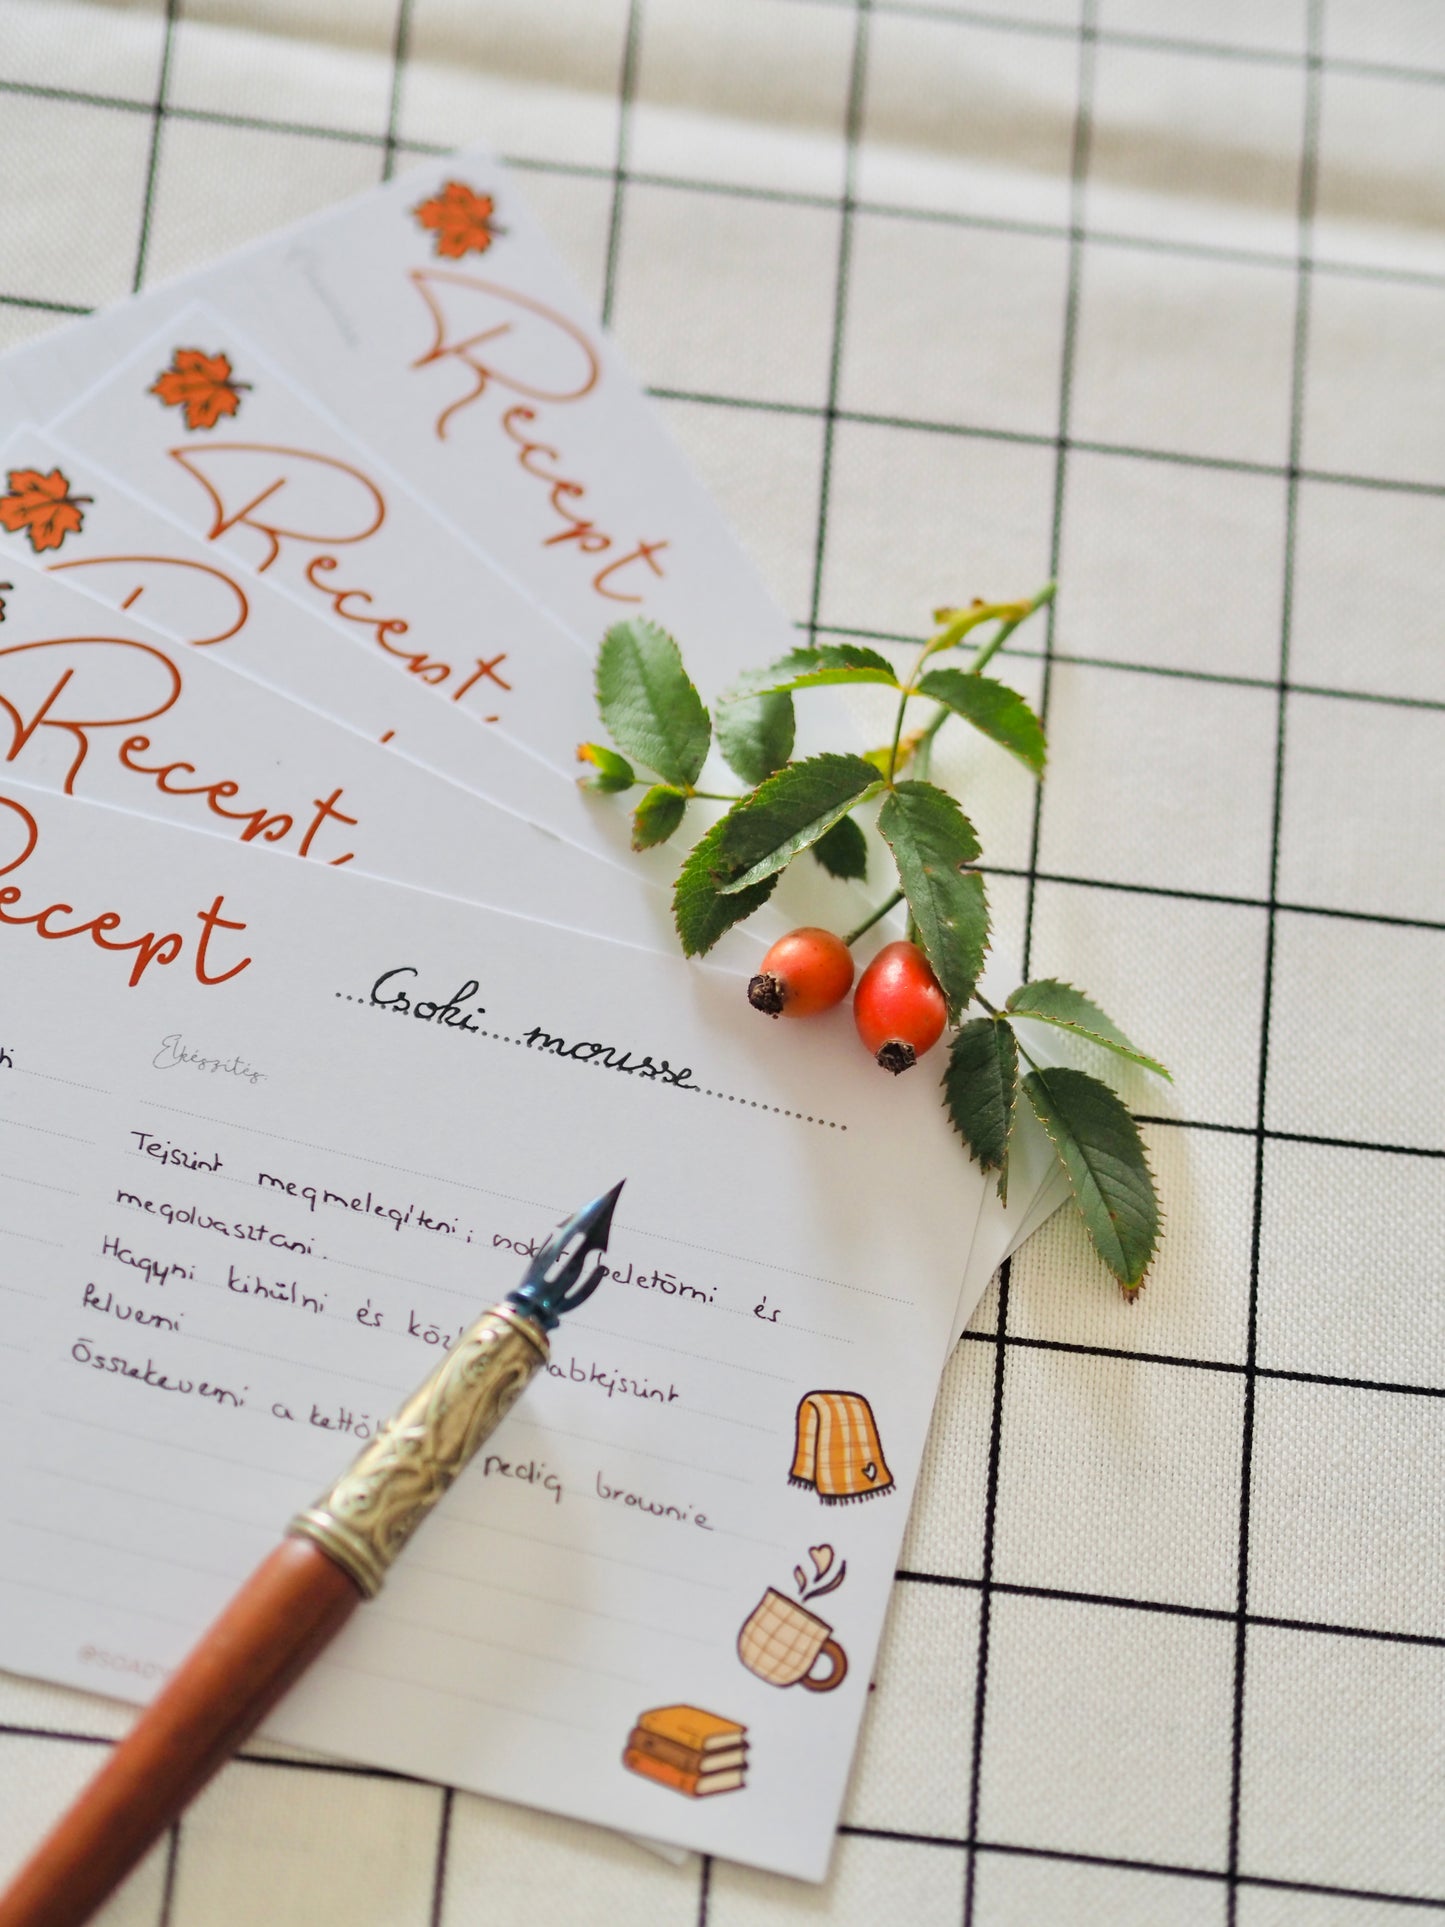 Recept
Recept
Recept
Recept
Csoki mousse
Elkészítés
Tejszínt megmelegíteni, beletörni és
megolvasztani.
Hagyni kihűlni és habtejszínt
felverni
Összekeverni a kettőt pedig brownie